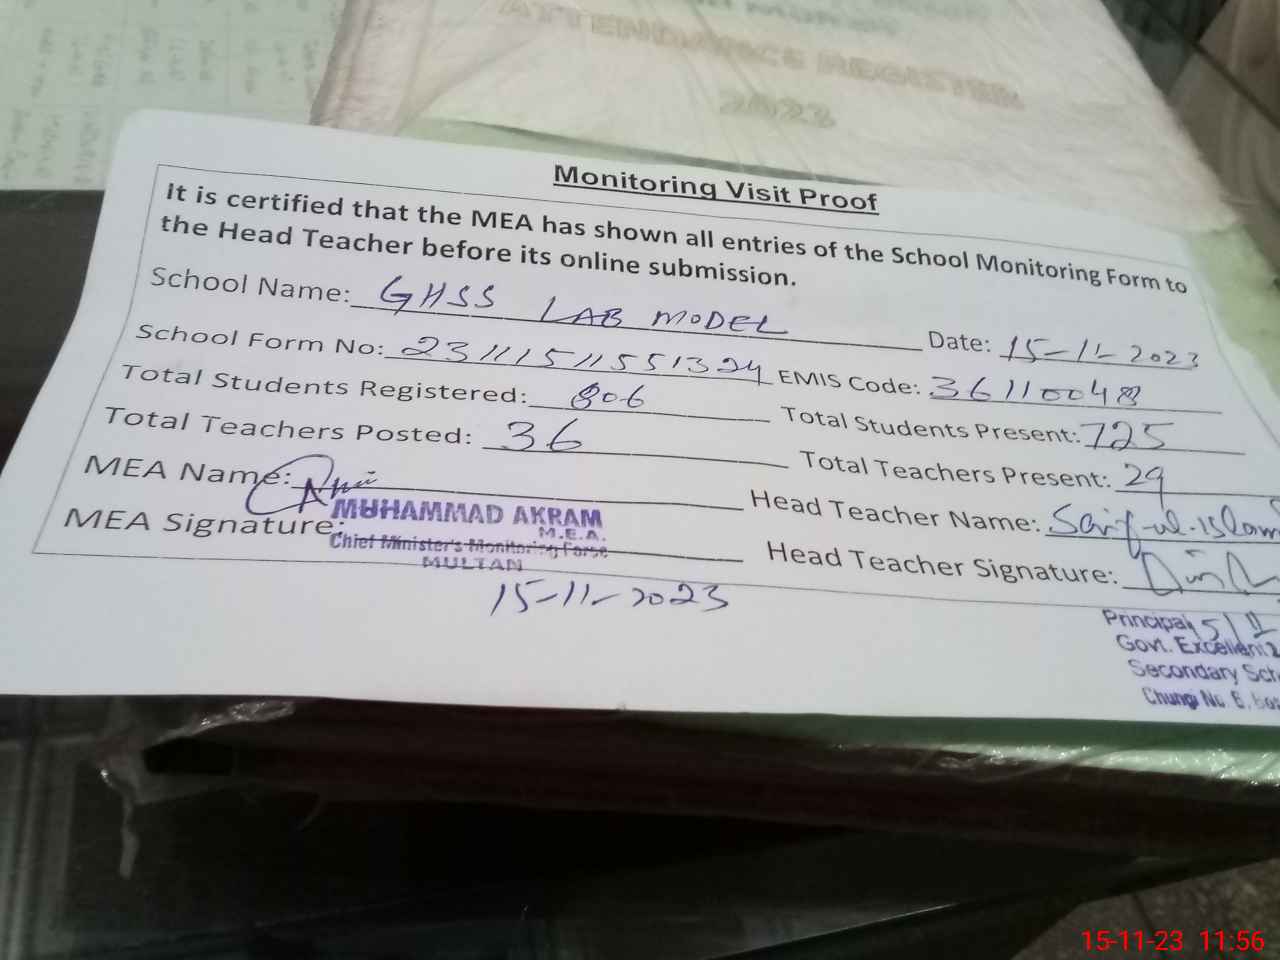 ATTENDANCE REGISTER
2023
Monitoring Visit Proof
It is certified that the MEA has shown all entries of the School Monitoring Form to
the Head Teacher before its online submission.
School Name: GHSS LAB MODEL Date: 15-11-2023
School Form No: 23111511551324 EMIS Code: 36110048
Total Students Registered: 806 Total Students Present: 725
Total Teachers Posted: 36 Total Teachers Present: 29
MEA Name: Head Teacher Name: Saif-ul-Islam
MEA Signature: Head Teacher Signature:
MUHAMMAD AKRAM
M.E.A.
Chief Minister's Monitoring Force
MULTAN
15-11-2023
Principal
Govt. Excellent
Secondary
Chungi No. 6,
15-11-23 11:56